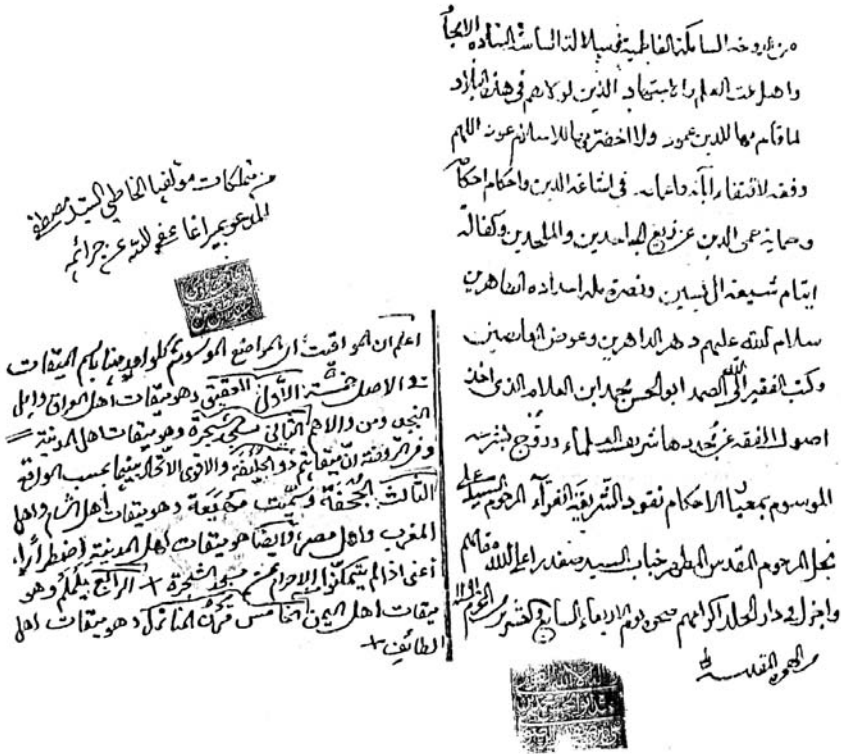 من الدوحة السامكة الفاطمية في سلالة السادة الانجاد
واهل بيت العلم والاجتهاد الذين لولاهم في هذه البلاد
لما قام بها للدين عمود ولا اخضر بها للاسلام عود اللهم
وفقه لاقتفاء آبائه في اشاعة الدين واحكام احكام
وحماية حمى الدين عن زيغ الجاحدين والملحدين وكفالة
ايتام شيعة ال يسين ونصرة ملة اجداده الطاهرين
سلام الله عليهم دهر الداهرين وعوض العائضين
وكتب الفقير الى الله الصمد ابو الحسن محمد ابن العلامة الذى اخذ
اصول الفقه عن شريف العلماء وروج
الموسوم بمعيار الاحكام نقود الشريعة الغراء المرحوم السيد علي
نجل المرحوم المقدس المطهر جناب السيد صفدر اعلى الله مقامهم
واجزل في دار الخلد اكرامهم ضحوة يوم الاربعاء السابع والعشرين من
من الهجرة المقدسة
من تملكات مؤلفها الخاطي السيد مصطفى
المدعو بمير اغا عفى الله عن جرائمه
اعلم ان المواقيت اي المواضع الموسوم كلواحد منها باسم الميقات
في الاصل خمسة الأول العقيق وهو ميقات اهل العراق واهل
النجد ومن والاهم الثاني مسجد شجرة وهو ميقات اهل المدينة
وفي الروضة ان ميقاتهم ذو الحليفة والاقوى الاتحاد بينهما بحسب الواقع
الثالث الجحفة وسميت مهيعة وهو ميقات أهل الشام واهل
المغرب واهل مصر وأيضا هو ميقات اهل المدينة اضطرارًا
أعنى اذا لم يتمكنوا الاحرام من مسجد الشجرة + الرابع يلملم وهو
ميقات اهل اليمن الخامس قرن المنازل وهو ميقات اهل
الطائف +